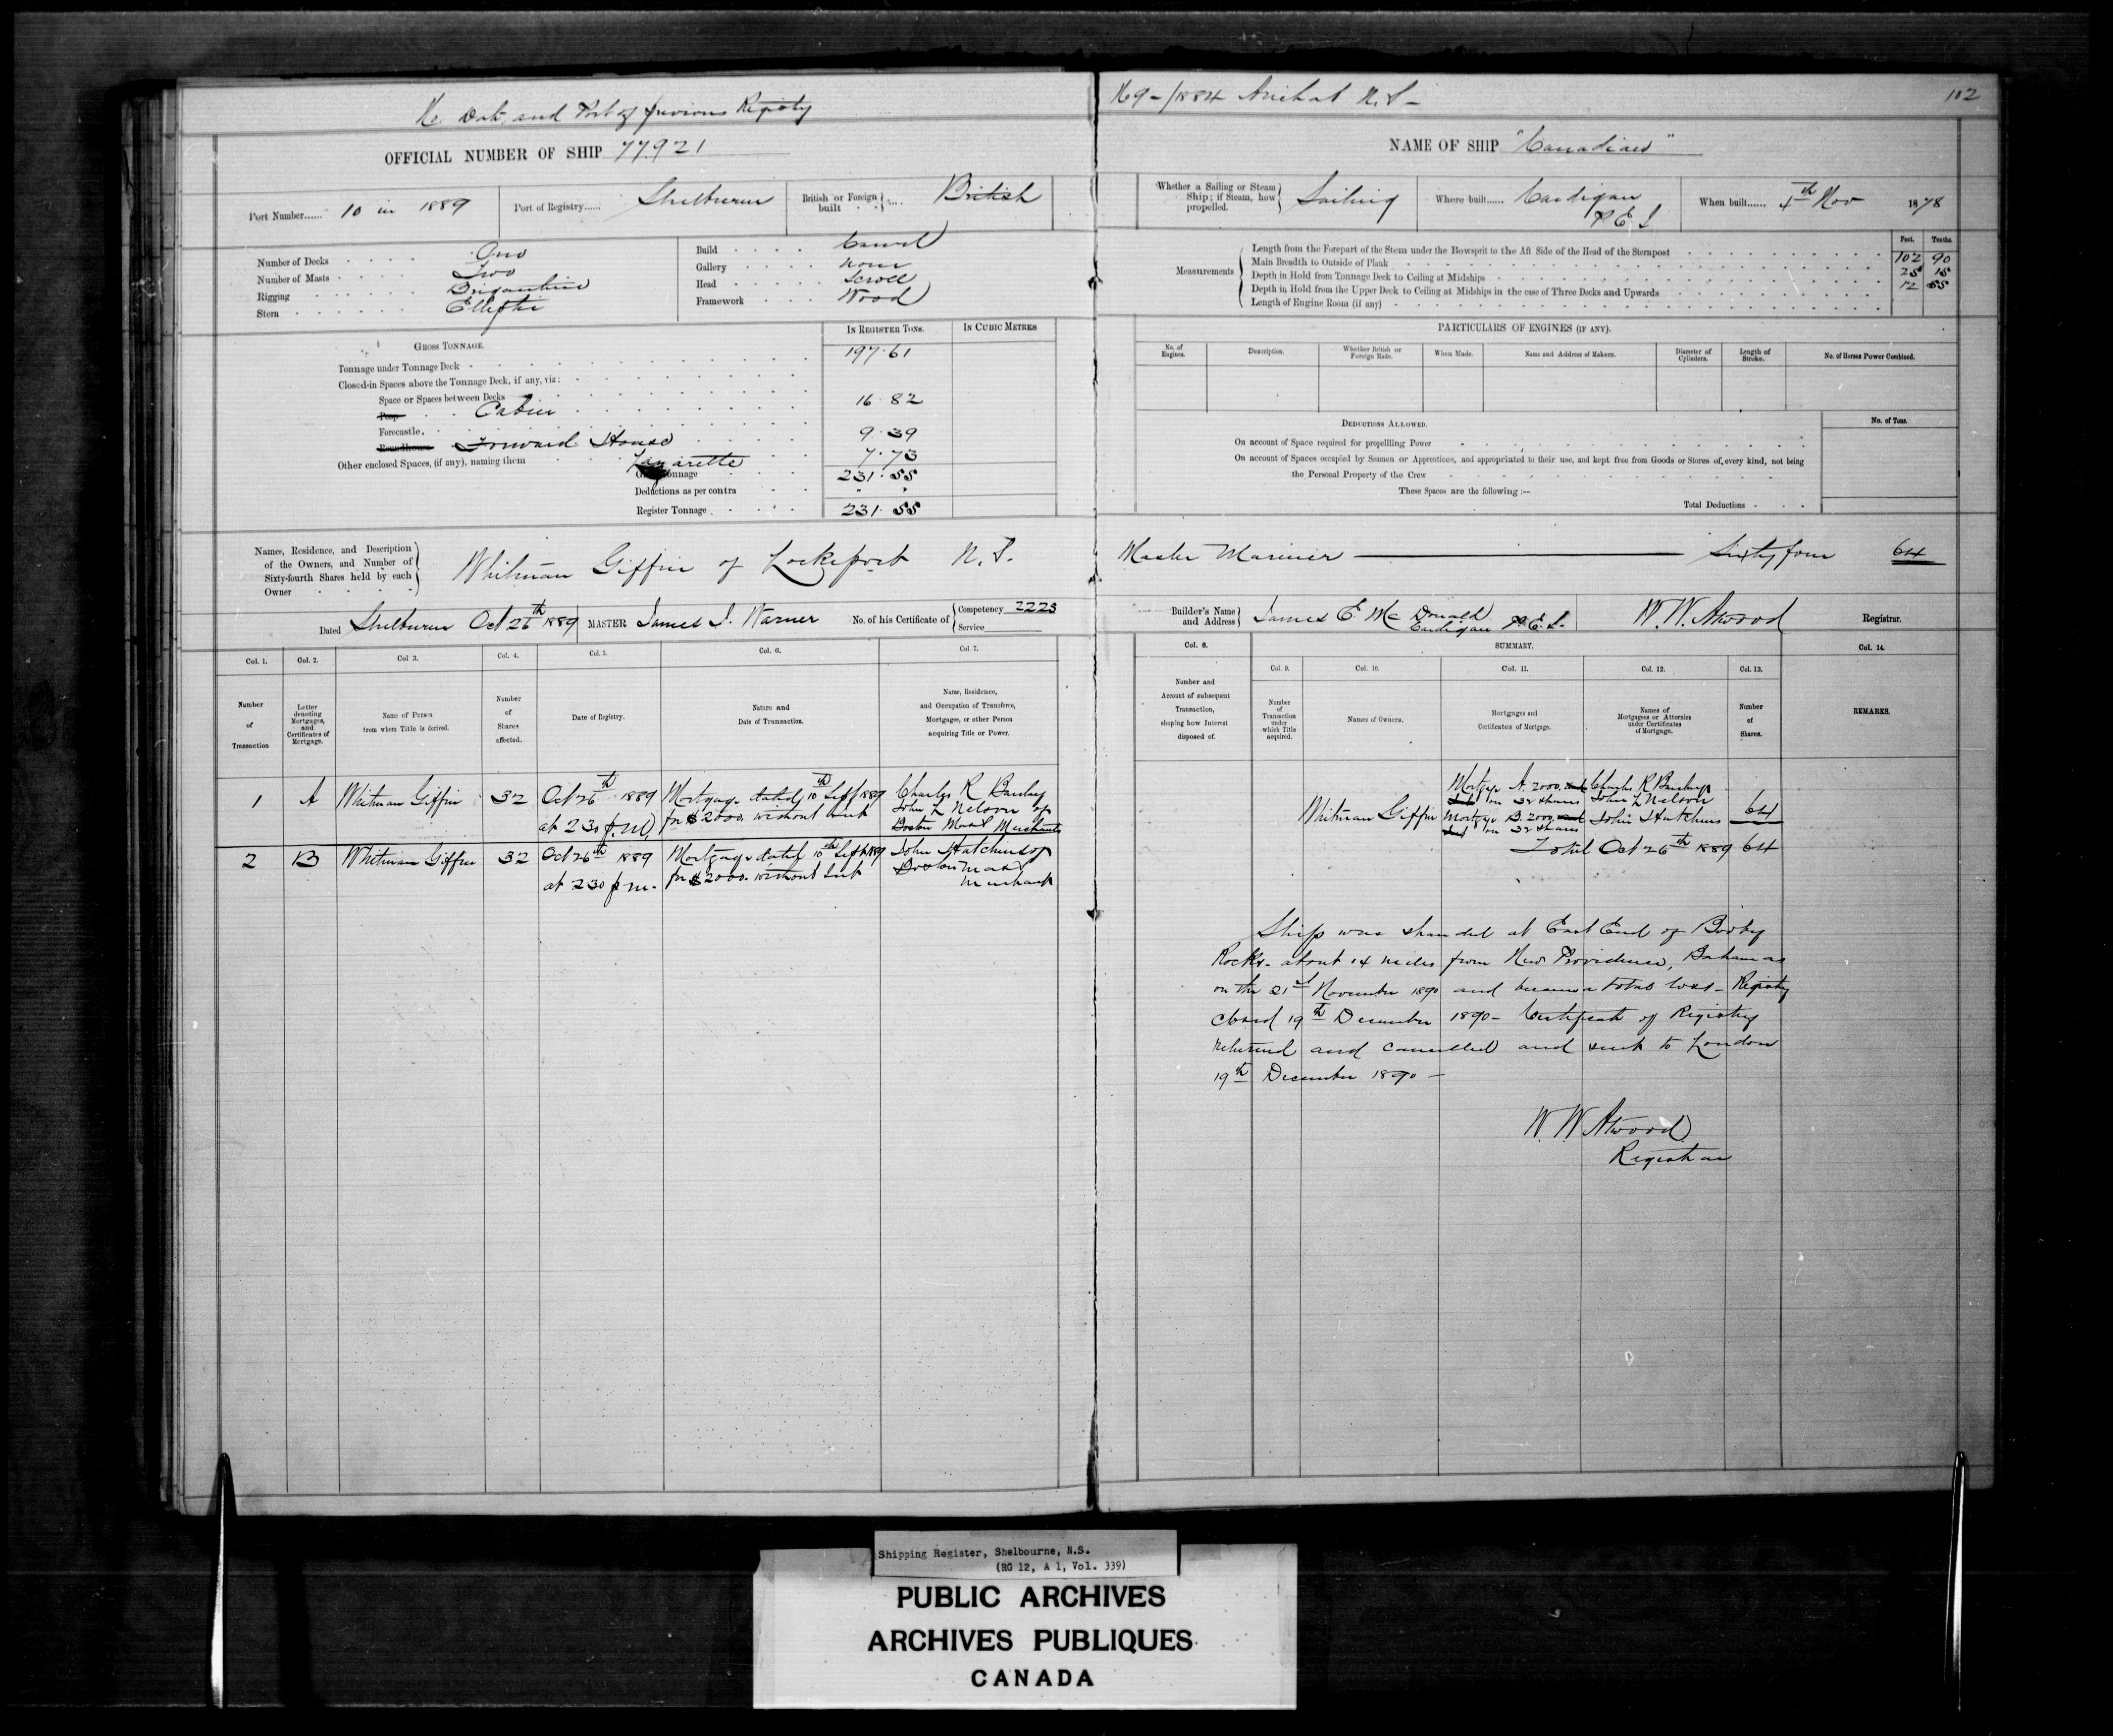 No. Date, and Port of previous Registry No 9 - /1884 Arichat N.S - 102
OFFICIAL NUMBER OF SHIP 77.921
NAME OF SHIP "Canadian"
Port Number...... 10 in 1889 Port of Registry...... Shelburne British or Foreign built .... British
Whether a Sailing or Steam Ship; if Steam, how propelled. Sailing Where built...... Cardigan P E I When built...... 4th Nov 1878
Number of Decks One
Number of Masts Two
Rigging Brigantine
Stern Elliptic
Build Carvel
Gallery None
Head Scroll
Framework Wood
Measurements
Feet. Tenths.
Length from the Forepart of the Stem under the Bowsprit to the Aft Side of the Head of the Sternpost 102 90
Main Breadth to Outside of Plank 25 15
Depth in Hold from Tonnage Deck to Ceiling at Midships 12 55
Depth in Hold from the Upper Deck to Ceiling at Midships in the case of Three Decks and Upwards
Length of Engine Room (if any)
GROSS TONNAGE.
IN REGISTER TONS. IN CUBIC METRES
Tonnage under Tonnage Deck 197.61
Closed-in Spaces above the Tonnage Deck, if any, viz:
Space or Spaces between Decks
Poop Cabin 16.82
Forecastle.
Roundhouse Forward House 9.39
Other enclosed Spaces, (if any), naming them Lazarette 7.73
Gross Tonnage 231.55
Deductions as per contra
Register Tonnage 231.55
PARTICULARS OF ENGINES (IF ANY).
No. of Engines. Description. Whether British or Foreign Made. When Made. Name and Address of Makers. Diameter of Cylinders. Length of Stroke. No. of Horses Power Combined.
DEDUCTIONS ALLOWED. No. of Tons.
On account of Space required for propellling Power
On account of Spaces occupied by Seamen or Apprentices, and appropriated to their use, and kept free from Goods or Stores of every kind, not being
the Personal Property of the Crew
These Spaces are the following :—
Total Deductions
Names, Residence, and Description of the Owners, and Number of Sixty-fourth Shares held by each Owner
Whitman Giffin of Lockeport N.S. Master Mariner Sixty four 64
Dated Shelburne Oct 26th 1889 MASTER James I. Warner No. of his Certificate of Competency 2223 Service
Builder's Name and Address James E McDonald Cardigan P.E.I. W.W. Atwood Registrar.
Col. 1. Col. 2. Col 3. Col. 4. Col. 5. Col. 6. Col 7.
Number of Transaction
Letter denoting Mortgages, and Certificates of Mortgage.
Name of Person from whom Title is derived.
Number of Shares affected.
Date of Registry.
Nature and Date of Transaction.
Name, Residence, and Occupation of Transferee, Mortgagee, or other Person acquiring Title or Power.
Col. 8. SUMMARY. Col. 14.
Col. 9. Col. 10. Col. 11. Col. 12. Col. 13.
Number and Account of subsequent Transaction, shoping how Interest disposed of.
Number of Transaction under which Title acquired.
Names of Owners.
Mortgages and Certificates of Mortgage.
Names of Mortgagees or Attornies under Certificates of Mortgage.
Number of Shares.
REMARKS.
1 A Whitman Giffin 32 Oct 26th 1889 at 2 30 p.m. Mortgage dated 10th Sept 1889 for $2000. without int Charles R John L Nelson of Boston Mass Merchants
2 B Whitman Giffin 32 Oct 26th 1889 at 2 30 p.m. Mortgage dated 10th Sept 1889 for $2000. without int John Hutchins of Boston Mass Merchant
Whitman Giffin
Mortgage A. 2000. on 32 shares Charles R John L Nelson
Mortgage B. 2000 on 32 shares John Hutchins 64
Total Oct 26th 1889 64
Ship was stranded at East End of Booby
Rocks - about 14 miles from New Providence, Bahamas
on the 21st November 1890 and became a total loss - Registry
closed 19th December 1890 - Certificate of Registry
returned and cancelled and sent to London
19th December 1890 -
W. W Atwood
Registrar
Shipping Register, Shelbourne, N.S.
(RG 12, A 1, Vol. 339)
PUBLIC ARCHIVES
ARCHIVES PUBLIQUES
CANADA